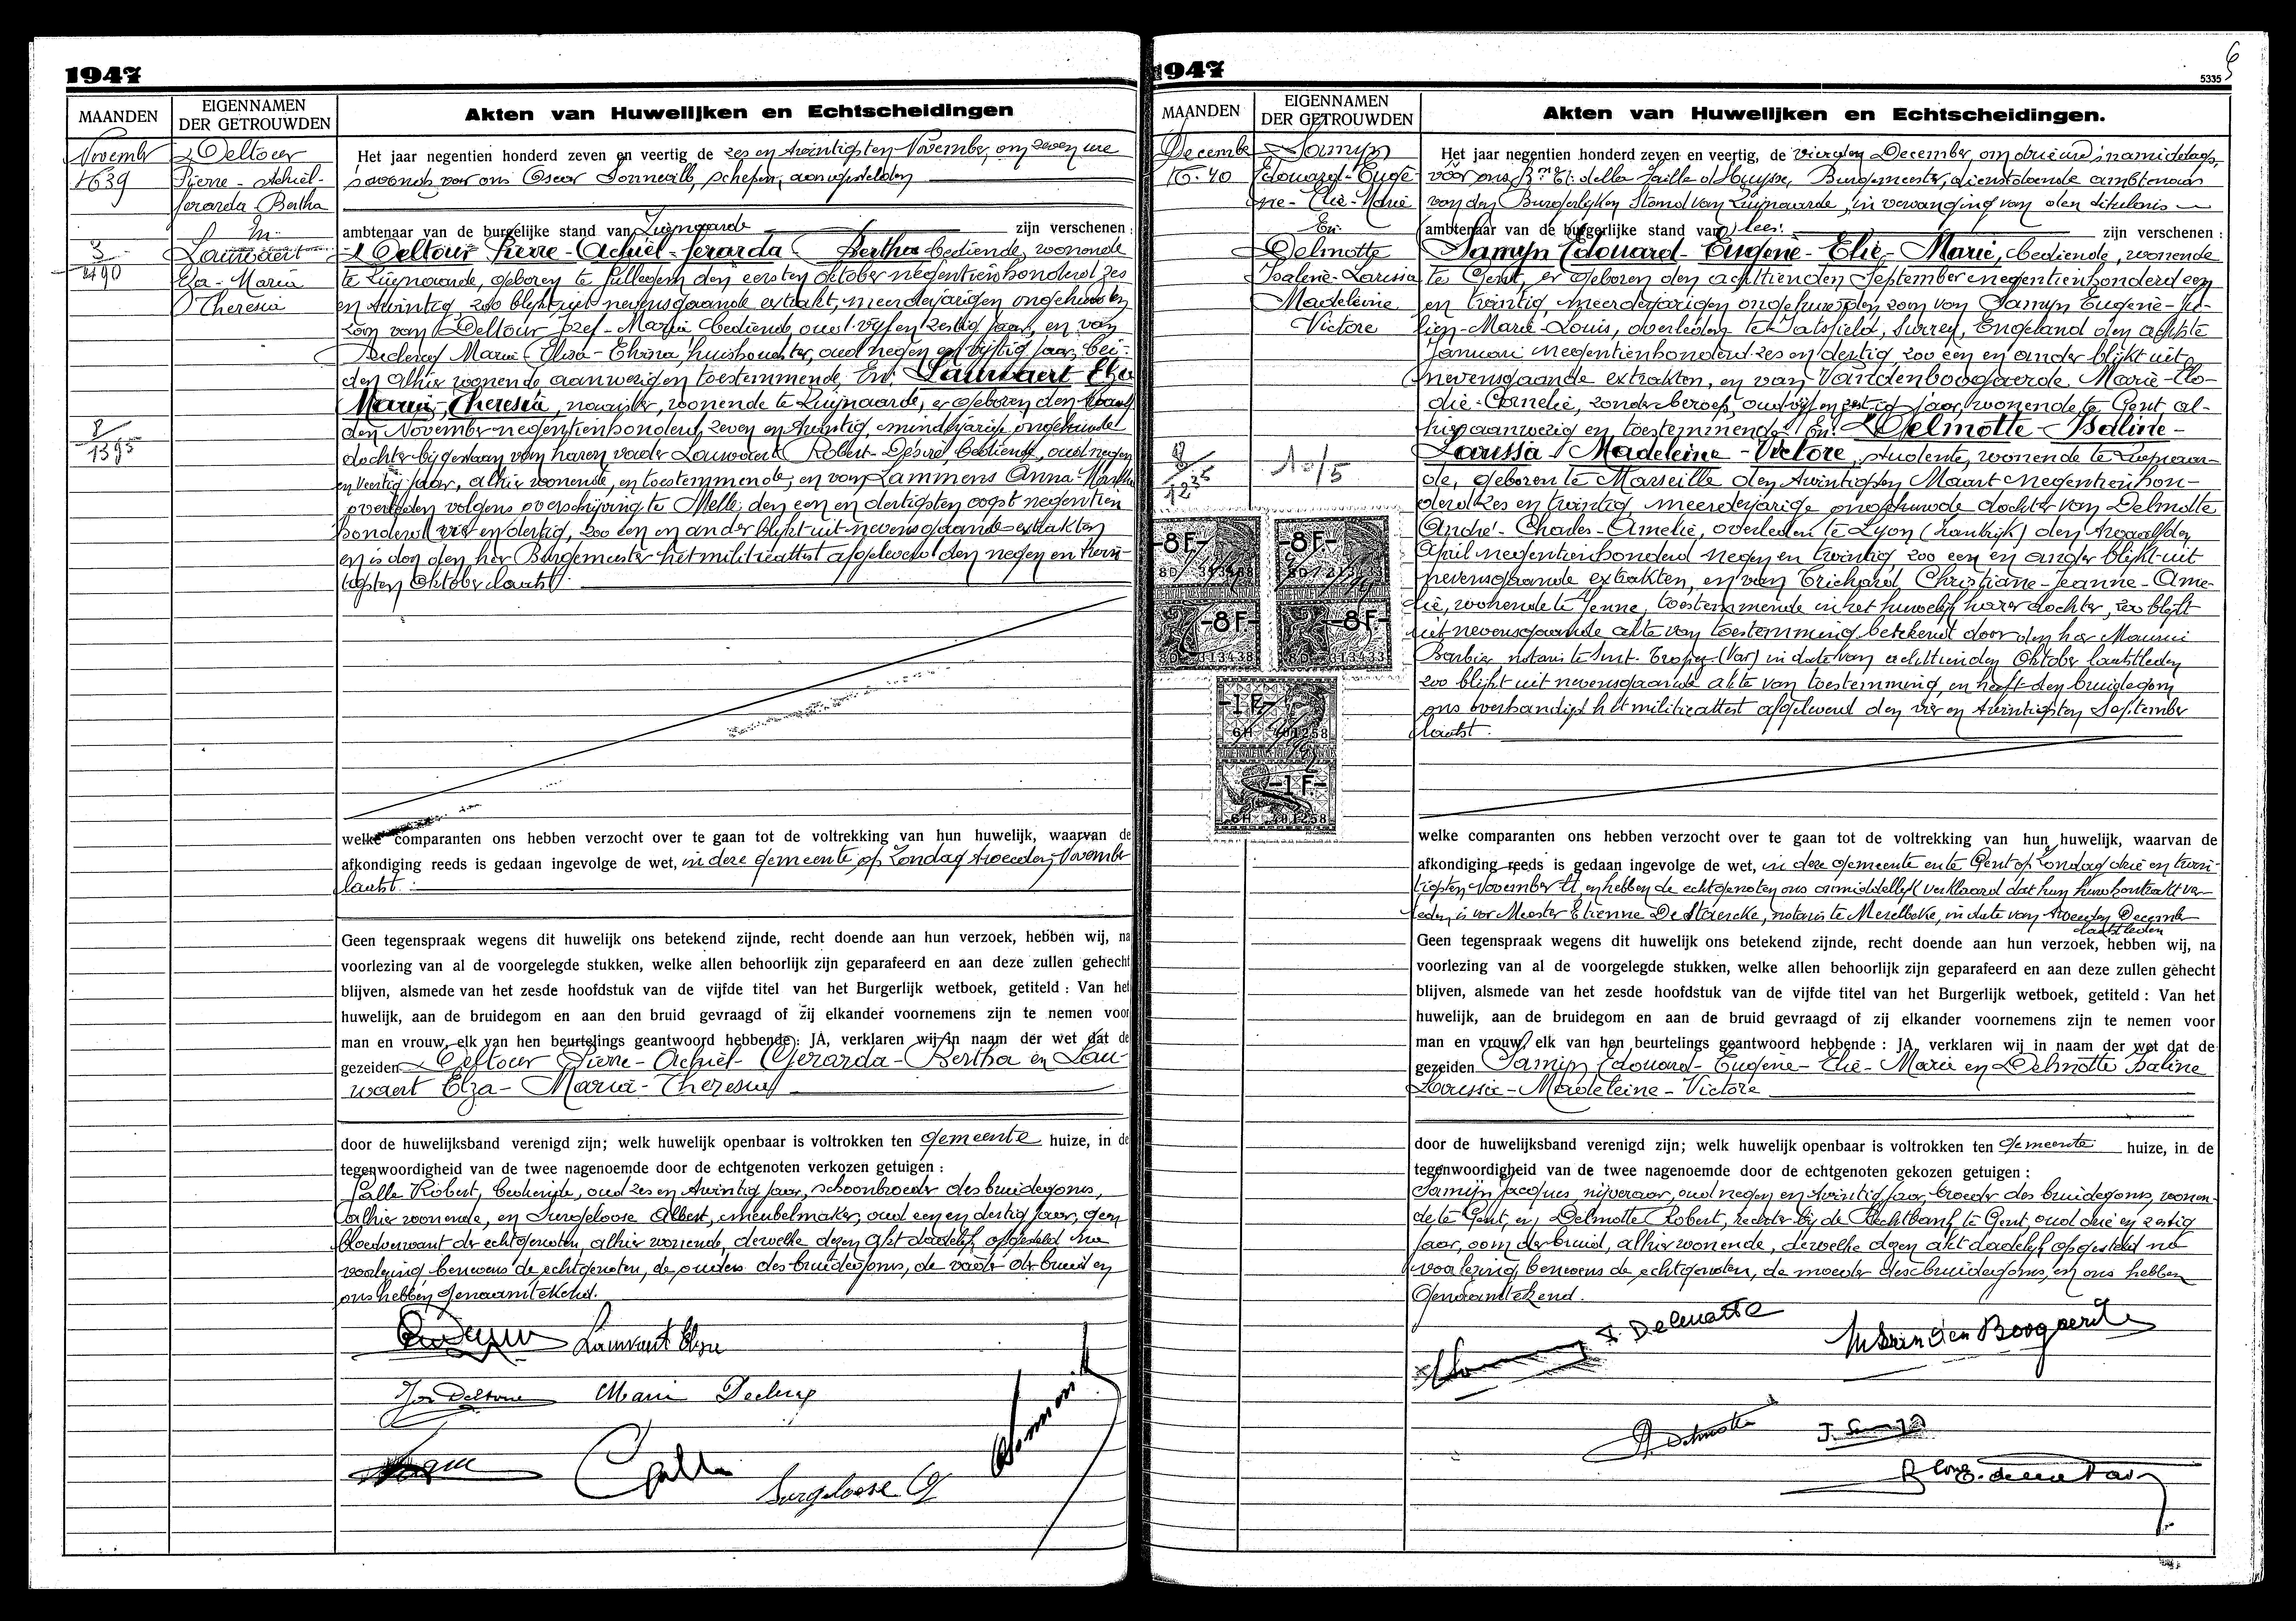 1947
MAANDEN
EIGENNAMEN
DER GETROUWDEN
Akten van Huwelijken en Echtscheidingen
November
N° 39
Deltour
Pierre - Achiel-
Gerarda - Bertha
En
Lauwaert
Elza - Maria
Theresia
3
2490
8
1395
Het jaar negentien honderd zeven en veertig de zes en twintigsten November, om zeven ure
s'avonds, voor ons Oscar Sonneville, schepen, aangestelden
ambtenaar van de burgelijke stand van Zwijnaarde zijn verschenen :
Deltour Pierre - Achiel - Gerarda Bertha bediende, wonende
te Zwijnaarde, geboren te den eersten oktober negentienhonderd zes
en twintig, zoo blijkt uit nevensgaande extrakt, meerderjarigen ongehuwden
zoon van Deltour Jozef - Maria bediende, oud vijf en zestig jaar, en van
Declercq Maria Elisa - huishoudster, oud negen en vijftig jaar, bei-
den alhier wonende aanwezig en toestemmende, En: Lauwaert Elza
Maria, Theresia, wonende te Zwijnaarde, er geboren den
den November negentienhonderd zeven en twintig, minderjarige ongehuwde
dochter bijgestaan van haren vader Lauwaert Robert - Désiré, bediende, oud negen
en veertig jaar, alhier wonende, en toestemmende, en van Lammens Anna - Maria
overleden volgens overschrijving te Melle, den een en dertigsten oogst negentien
honderd vier en dertig, zoo een en ander blijkt uit nevensgaande extrakten
en is don den heer Burgemeester het militieattest afgeleverd den negen en twin-
tigsten Oktober laatst.
welke comparanten ons hebben verzocht over te gaan tot de voltrekking van hun huwelijk, waarvan de
afkondiging reeds is gedaan ingevolge de wet, in deze gemeente op Zondag tweeden November
laatst.
Geen tegenspraak wegens dit huwelijk ons betekend zijnde, recht doende aan hun verzoek, hebben wij, na
voorlezing van al de voorgelegde stukken, welke allen behoorlijk zijn geparafeerd en aan deze zullen gehecht
blijven, alsmede van het zesde hoofdstuk van de vijfde titel van het Burgerlijk wetboek, getiteld : Van het
huwelijk, aan de bruidegom en aan den bruid gevraagd of zij elkander voornemens zijn te nemen voor
man en vrouw, elk van hen beurtelings geantwoord hebbende : JA, verklaren wij in naam der wet dat de
gezeiden Deltour Pierre - Achiel - Gerarda - Bertha en Lau-
waert Elza - Maria - Theresia
door de huwelijksband verenigd zijn; welk huwelijk openbaar is voltrokken ten gemeente huize, in de
tegenwoordigheid van de twee nagenoemde door de echtgenoten verkozen getuigen :
Galle Robert, bediende, oud zes en twintig jaar, schoonbroeder des bruidegoms,
alhier wonende, en Surgeloose Albert, meubelmaker, oud een en dertig jaar, geen
bloedverwant der echtgenoten, alhier wonende, dewelke dezen akt dadelijk opgesteld na
voorlezing benevens de echtgenoten, de ouders des bruidegoms, de vader der bruid en
ons hebben genaamtekend.
Lauwaert Elza
Jos Deltour Marie Declercq
Galle
Surgeloose
1947
5335
6
MAANDEN
EIGENNAMEN
DER GETROUWDEN
Akten van Huwelijken en Echtscheidingen.
December
N°. 40
Samijn
Edouard - Eugè-
ne - Elie - Marie
En
Delmotte
Isaline - Larissia
Madeleine
Victore
8
1235
10/5
-8 F.-
-8 F.-
-8 F.-
-8 F.-
-1 F.-
-1 F.-
Het jaar negentien honderd zeven en veertig, de vierden December, om drie uur s'namiddags,
voor ons Bon Et. della Faille d'Huysse, Burgemeester, dienstdoende ambtenaar
van den Burgerlijken Stand van Zwijnaarde, in vervanging van den titularis
ambtenaar van de burgerlijke stand van lees: zijn verschenen :
Samijn Edouard - Eugène - Elie - Marie, bediende, wonende
te Gent, er geboren den achttienden September negentienhonderd een
en twintig, meerderjarigen ongehuwden zoon van Samijn Eugenè - Ju-
lien - Marie - Louis, overleden te Tatsfield, Surrey, Engeland den achtste
Januari negentienhonderd zes en dertig, zoo een en ander blijkt uit
nevensgaande extrakten, en van Vandenboogaerde Marie - Elo-
die - Cornelie, zonder beroep, oud vijf en zestig jaar, wonende te Gent, al-
hier aanwezig en toestemmende: En: Delmotte - Isaline -
Larissia Madeleine - Victore, studente, wonende te Zwijnaar-
de, geboren te Marseille den twintigsten Maart negentienhon-
derd zes en twintig, meerderjarige ongehuwde dochter van Delmotte
André - Charles - Amelie, overleden te Lyon (Frankrijk) den twaalfden
April negentienhonderd negen en twintig, zoo een en ander blijkt uit
nevensgaande extrakten, en van Trichard Christiane - Jeanne - Ame-
lie, wonende te toestemmende in het huwelijk harer dochter, zoo blijkt
uit nevensgaande akte van toestemming betekend door den heer Maurice
Barbier notaris te Sint. Tropez (Var) in date van achttienden Oktober laatstleden
zoo blijkt uit nevensgaande akte van toestemming, en heeft den bruidegom
ons overhandigd het militieattest afgeleverd den vier en twintigsten September
laatst.
welke comparanten ons hebben verzocht over te gaan tot de voltrekking van hun huwelijk, waarvan de
afkondiging reeds is gedaan ingevolge de wet, in deze gemeente en te Gent op Zondag drie en twin-
tigsten November ll. en hebben de echtgenoten ons onmiddellijk verklaard dat hun huwkontrakt ver-
leden is voor Meester Etienne De Staercke, notaris te Merelbeke, in date van tweeden December
laatstleden
Geen tegenspraak wegens dit huwelijk ons betekend zijnde, recht doende aan hun verzoek, hebben wij, na
voorlezing van al de voorgelegde stukken, welke allen behoorlijk zijn geparafeerd en aan deze zullen gehecht
blijven, alsmede van het zesde hoofdstuk van de vijfde titel van het Burgerlijk wetboek, getiteld : Van het
huwelijk, aan de bruidegom en aan de bruid gevraagd of zij elkander voornemens zijn te nemen voor
man en vrouw, elk van hen beurtelings geantwoord hebbende : JA, verklaren wij in naam der wet dat de
gezeiden Samijn Edouard - Eugène - Elie - Marie en Delmotte Isaline
Larissia - Madeleine - Victore
door de huwelijksband verenigd zijn; welk huwelijk openbaar is voltrokken ten gemeente huize, in de
tegenwoordigheid van de twee nagenoemde door de echtgenoten gekozen getuigen :
Samijn Jacques, nijveraar, oud negen en twintig jaar, broeder des bruidegoms, wonen-
de te Gent, en, Delmotte Robert, rechter bij de Rechtbank te Gent, oud drie en zestig
jaar, oom der bruid, alhier wonende, dewelke dezen akt dadelijk opgesteld na
voorlezing, benevens de echtgenoten, de moeder des bruidegoms, en ons hebben
genaamtekend.
I Delmotte
M Vanden Boogaerde
R Delmotte
J. Samijn